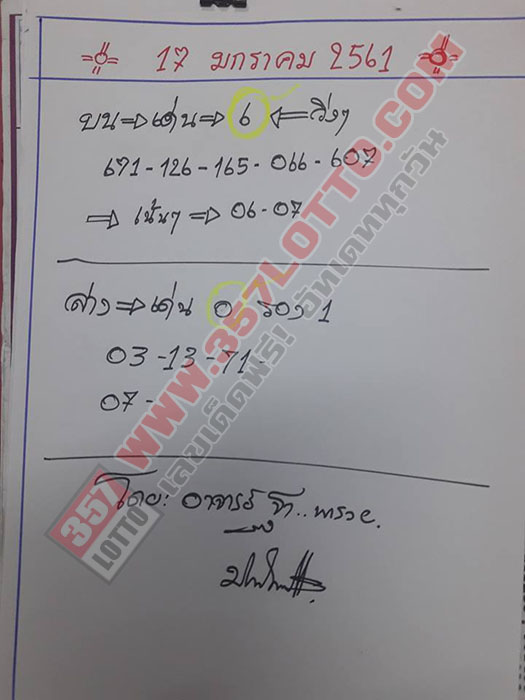 17 มกราคม 2561
บน⇒เด่น⇒ 6 ⇐วิ่งๆ
671-126-165-066-607
⇒ เน้นๆ ⇒ 06-07
ล่าง⇒เด่น 0 รอง 1
03-13-71-
07-
โดย: อาจารย์
357 LOTTO WWW.357LOTTO.COM
เลขเด็ดฟรี! อัพเดททุกวัน